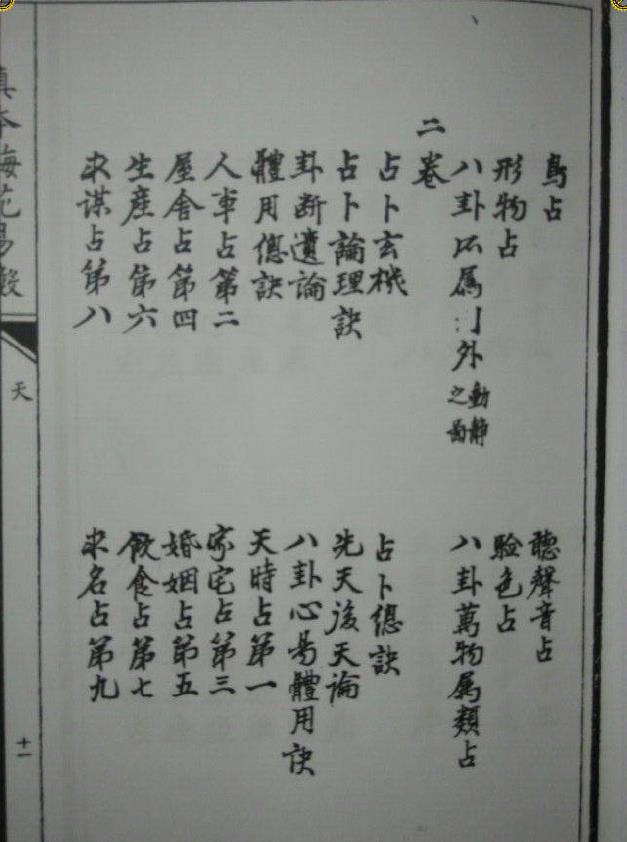 鳥占
聽聲音占
形物占
驗色占
八卦所屬 外動靜之啚
八卦萬物属類占
二卷
占卜玄機
占卜總訣
占卜論理訣
先天後天論
卦斷遺論
八卦心易體用訣
體用總訣
天時占第一
人事占第二
家宅占第三
屋舍占第四
婚姻占第五
生産占第六
飲食占第七
求謀占第八
求名占第九
真本梅花易數
天
十一